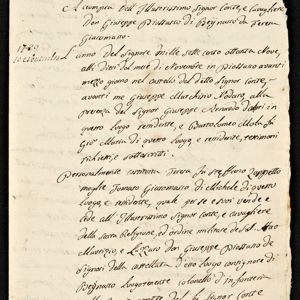 Acompra dell'Illustrissimo Signor Conte, e Cavagliere
Don Giuseppe Piossasco di Beynasco da Teresa
Giacomasso.
1789
10 Novembre
L'anno del Signore mille sette cento ottanta Nove,
alli dieci del mese di Novembre in Piossasco avanti
mezzo giorno nel castello del detto Signor Conte,
avanti me Giuseppe Marchisio Nodaro, alla
presenza del Signor Giuseppe
questo luogo residente, e Bartolomeo
Gio' Maria di questo luogo, e residente, testimonj
richiesti, e sottoscritti.
Personalmente costituita Teresa fu Steffano
moglie Tomaso Giacomasso di Michele di questo
luogo, e residente, quale per se e suoi vende, e
cede all'Illustrissimo Signor Conte, e Cavagliere
della Sacra Religione, ed ordine militare de' S.ti
Maurizio, e Lazzaro Don Giuseppe Piossasco de
Signori della castellata di esso luogo consignori di
Beynasco Luogotenente colonello d'infanteria
Signor Conte